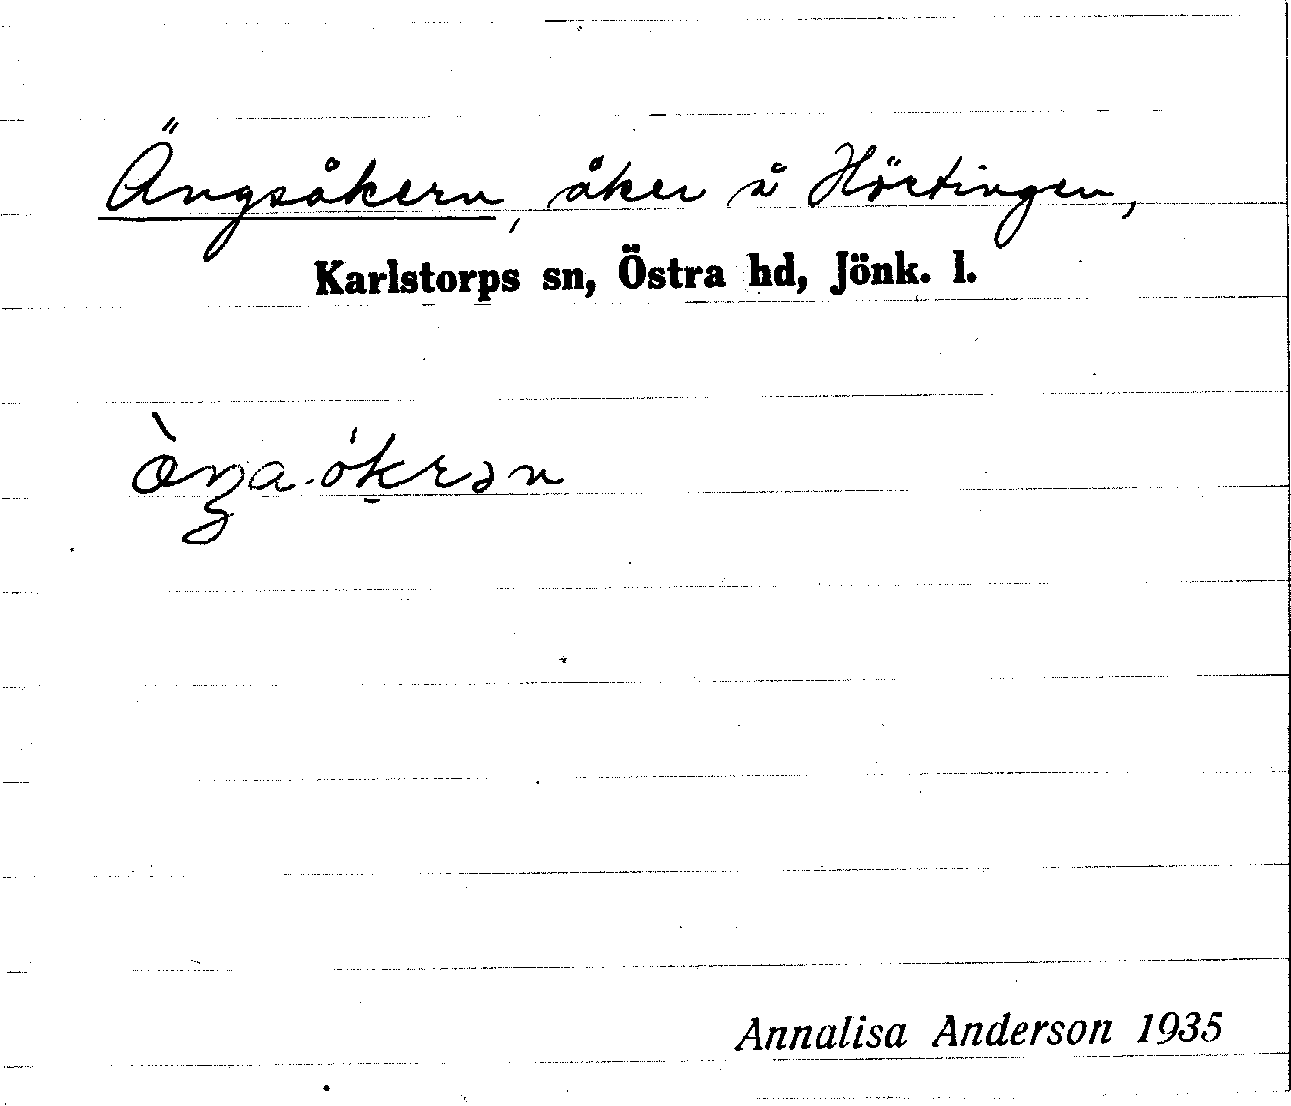 Ängsåkern, åker å Hörtingen,
Karlstorps sn, Östra hd, Jönk. l.
Annalisa Anderson 1935